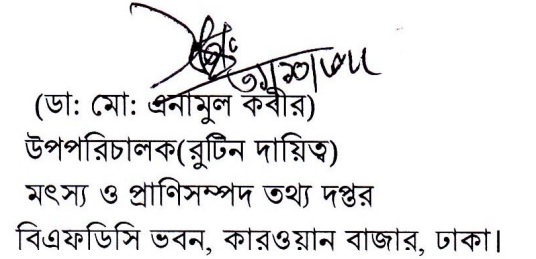 (ডা: মো: এনামুল কবীর)
উপপরিচালক(রুটিন দায়িত্ব)
মৎস্য ও প্রাণিসম্পদ তথ্য দপ্তর
বিএফডিসি ভবন, কারওয়ান বাজার, ঢাকা।